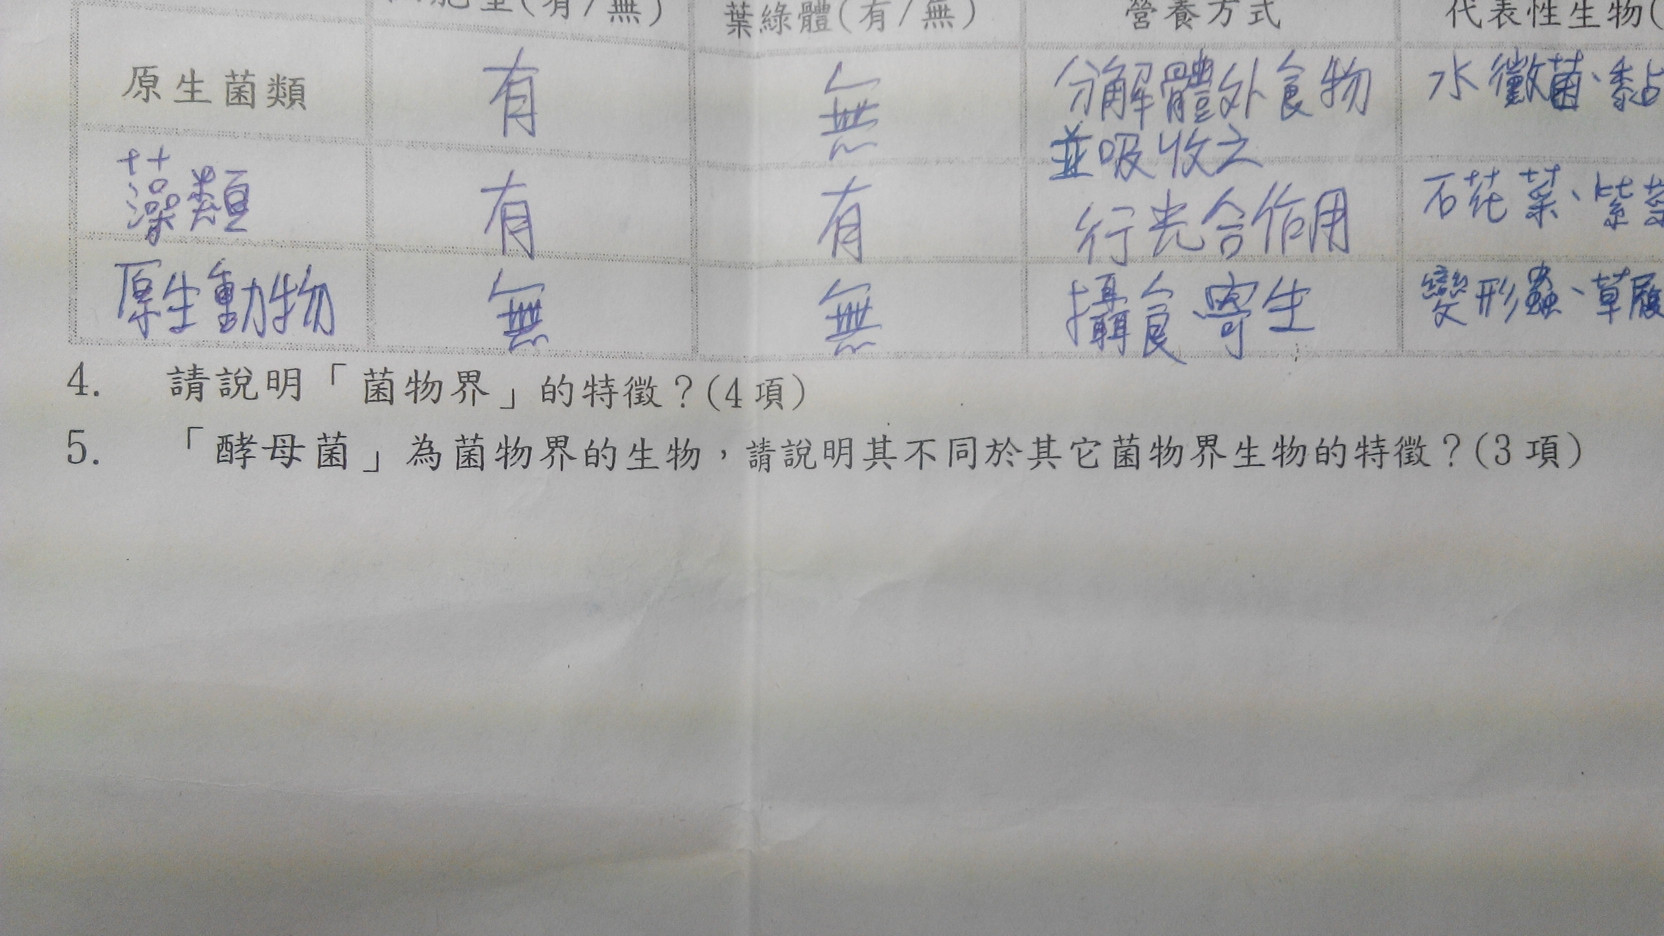 (有/無) 葉綠體(有/無) 營養方式 代表性生物(
原生菌類 有 無 分解體外食物 水黴菌、黏
並吸收之
藻類 有 有 行光合作用 石花菜、紫菜
原生動物 無 無 攝食寄生 變形蟲、草履
4. 請說明「菌物界」的特徵?(4項)
5. 「酵母菌」為菌物界的生物,請說明其不同於其它菌物界生物的特徵?(3項)